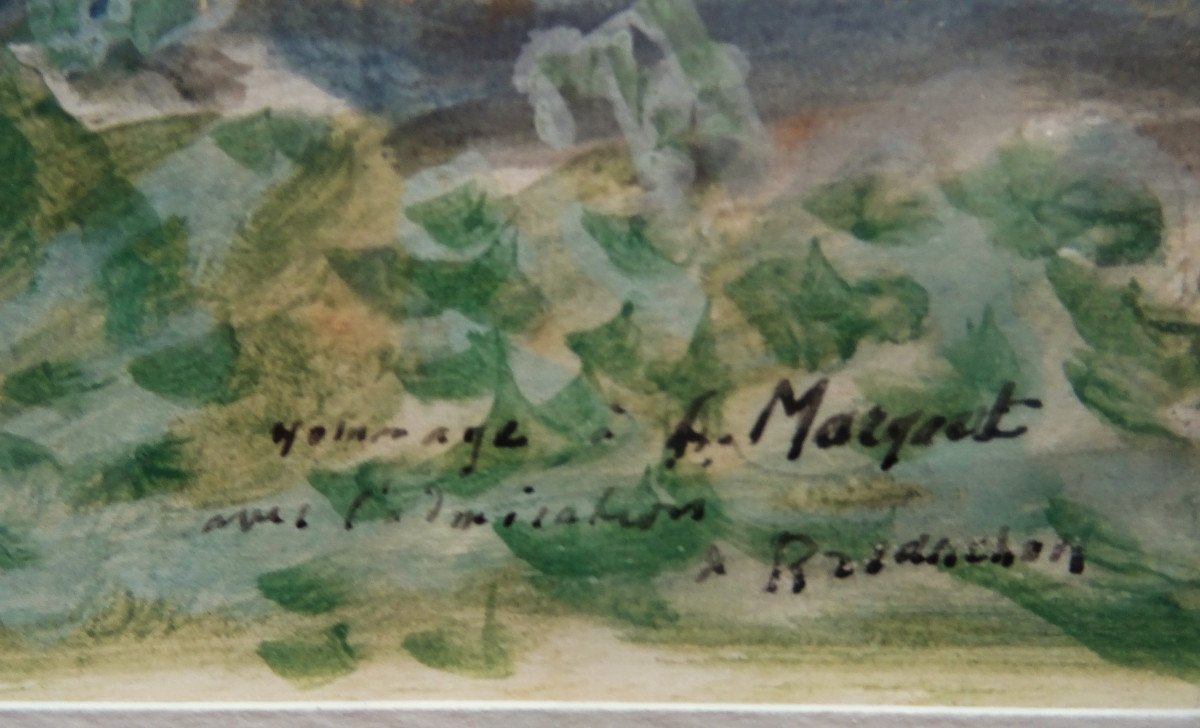 Hommage à A. Marquet
avec l'admiration
de Brianchon